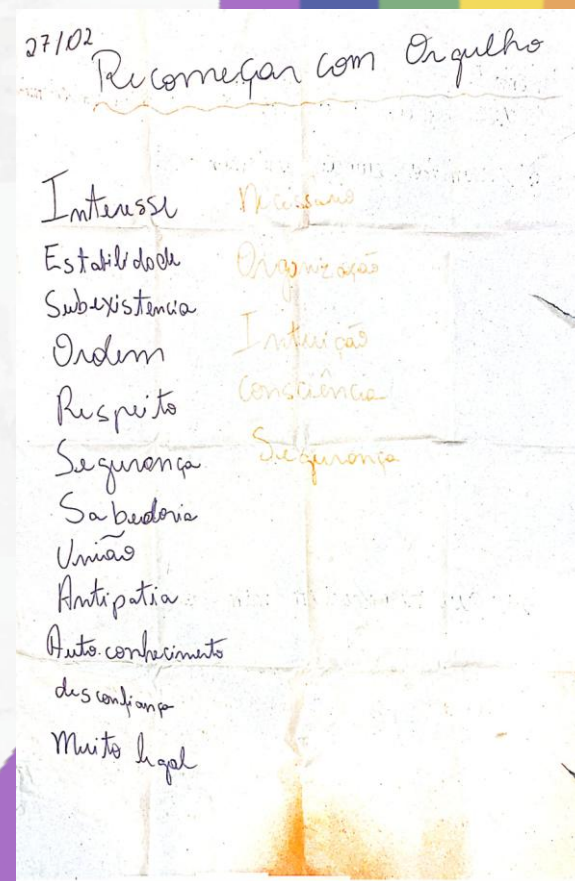 27/02
Recomeçar com Orgulho
Interesse
Estabilidade
Subexistencia
Ordem
Respeito
Segurança
Sabedoria
União
Antipatia
Auto.conhecimento
desconfiança
Muito legal
Necessario
Organização
Intuição
Consciência
Segurança